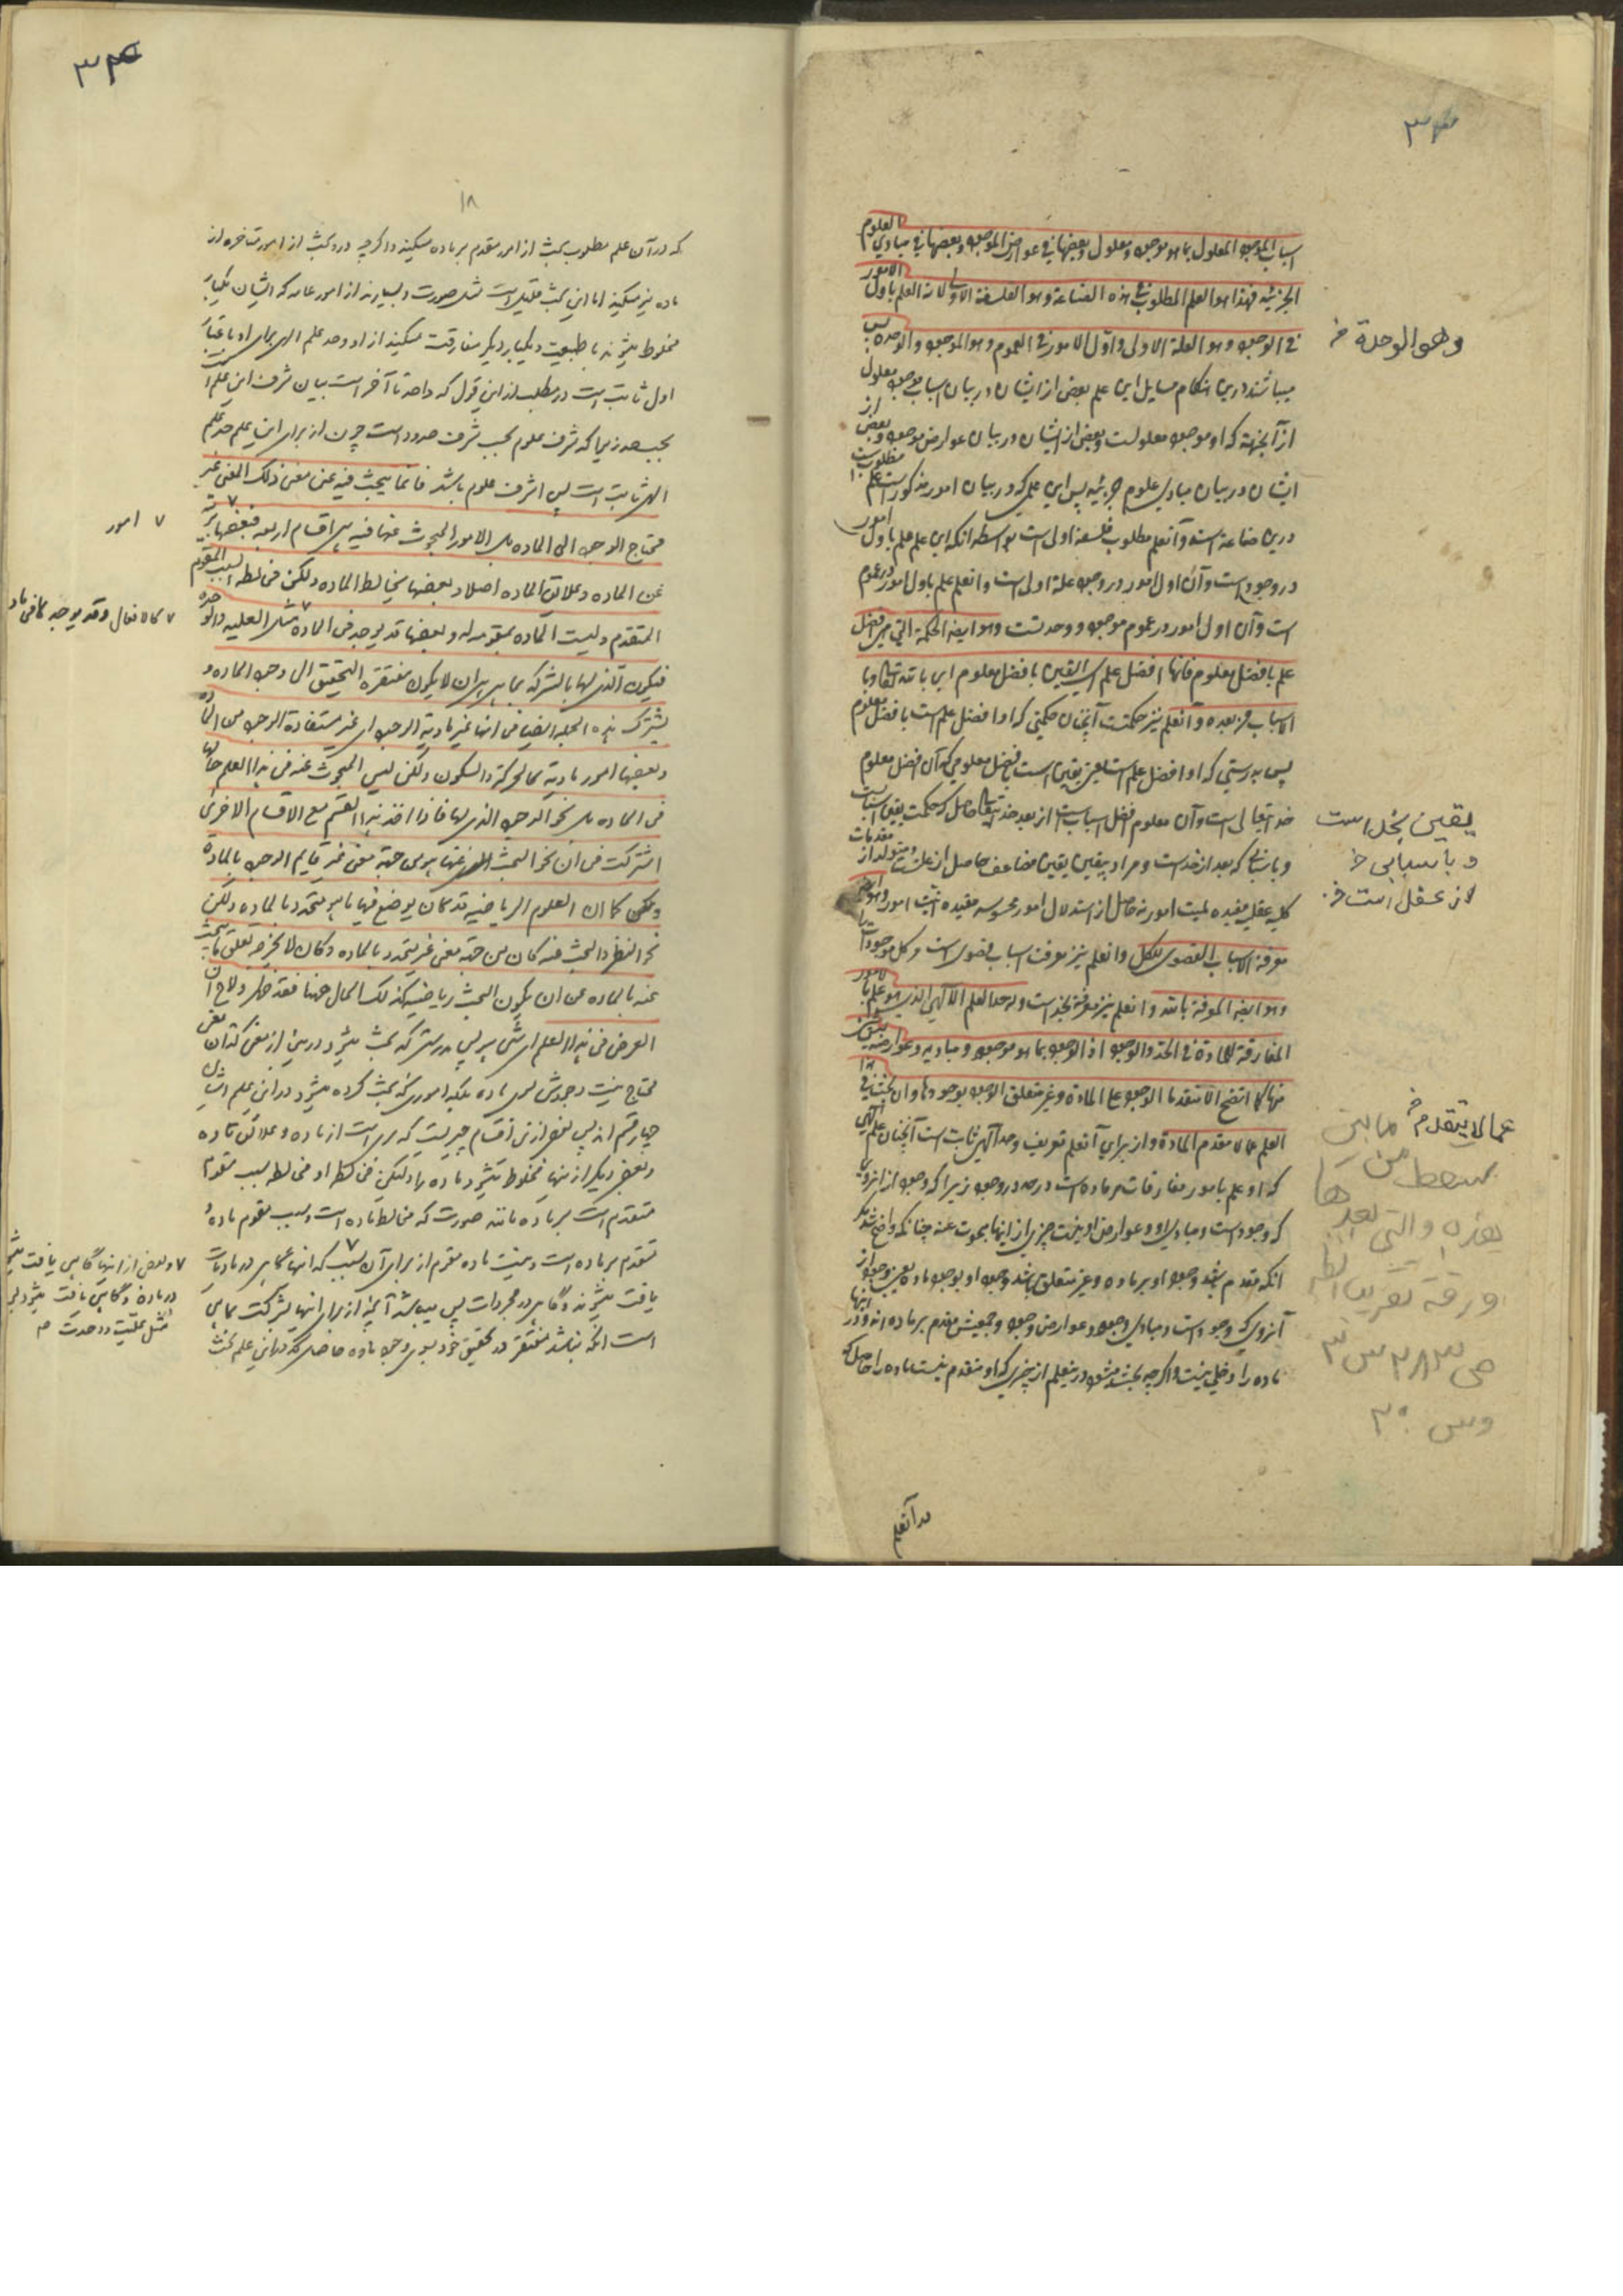 ۳۳
اسباب الموجود المعلول بما هو موجود معلول وبعضها في عوارض الموجود وبعضها في مبادي العلوم
الجزئیه فهذا هو العلم المطلوب في هذه الصناعة وهو الفلسفة الاولی لانه العلم باول الامور
في الوجود وهو العلة الاولی واول الامور في العموم وهو الموجود والوحده پس
وهو الوحدة خ
میباشند درین هنگام مسایل این علم بعضی از ایشان در بیان اسباب موجود معلول
از آنجهته که او موجود معلولست وبعضی از ایشان در بیان عوارض موجود وبعضی از
ایشان در بیان مبادی علوم جزئیه پس این علمی که در بیان امور مذکور است علم مطلوبست
درین صناعة است وآنعلم مطلوب فلسفه اولی است بواسطه انکه این علم علم باول امور
در وجود است وآن اول امور در وجود علة اولی است وانعلم علم باول امور در عموم
است وآن اول امور در عموم موجود و وحدتست وهو ایضا الحکمة التي هي افضل
علم بافضل معلوم فانها افضل علم ای الیقین بافضل معلوم ای بالله تعالی وبا
الاسباب من بعده وآنعلم نیز حکمتست آنچنان حکمتی که او افضل علم است بافضل معلوم
پس بدرستی که او افضل علم است یعنی یقین است بافضل معلومی که آن افضل معلوم
خدایتعالی است وآن معلوم افضل اسباب است از بعد خدایتعالی حاصل که حکمت یقین است
یقین بخداست
وباسبابی خ
از عقل است خ
وباسبابی که بعد از خداست ومراد بیقین یقین مضاعف حاصل از علت ومتولد از مقدمات
کلیه عقلیه مفیده لمیت امور نه حاصل از استدلال امور محسوسه مفیده انیت امور وهو ایضا
معرفة الاسباب القصوی للکل وانعلم نیز معرفت اسباب قصوی است وکل موجودات را
وهو ایضا المعرفة بالله وانعلم نیز معرفة بخداست وله حد العلم الالهی الذی هو علم بالامور
المفارقة للمادة في الحد والوجود اذ الموجود بما هو موجود ومبادیه وعوارضه لیس شیء
منها کما اتضح الا متقدما الوجود علی المادة وغیر متعلق الوجود بوجودها وان بحث في هذا
العلم عما لا یتقدم المادة واز برای آنعلم تعریف وحد الهی ثابت است آنچنان علم الهی
عما لا یتقدم خ
که او علم بامور مفارقات مر ماده است در حد ودر وجود زیرا که موجود از انروی
که موجود است ومبادی او وعوارض او نیست چیزی از اینها مبحوث عنه چنانکه واضح شد مگر
انکه مقدم باشد وجود او بر ماده وغیر متعلق باشد وجود او بوجود ماده یعنی وجود از
آنروی که وجود است ومبادی وجود وعوارض وجود وجمیعش مقدم بر ماده اند ودر اینها
ماده را دخلی نیست واگرچه بحث میشود درینعلم از چیزی که او متقدم نیست ماده را حاصل که
در آنعلم
ما بین
سقط من
هذه والتی بعدها
ورقة تقریبا
۳۰
۳۴
۱۸
که در آن علم مطلوب بحث از امور مقدم بر ماده میکنند واگرچه درو بحث از امور متاخره از
ماده نیز میکنند اما این بحث قلیل است مثل صورت وبسیارند از امور عامه که ایشان یکبار
مخلوط میشوند با طبیعت ویکبار دیگر مفارقت میکنند از او وحد علم الهی برای او باعتبار
اول ثابت است در مطلب از این قول که وله حد تا آخر است بیان شرف این علم است
بحسب حد زیرا که شرف علوم بحسب شرف حدود است چون از برای این علم حد علم
الهی ثابت است پس اشرف علوم باشد فانما یبحث فیه عن معنی ذلک المعنی غیر
محتاج الوجود الی الماده بل الامور المبحوث عنها فیه هی اقسام اربعه فبعضها بریة
۷ امور
عن الماده وعلائق الماده اصلا وبعضها یخالط الماده ولکن مخالطه السبب المقوم
المتقدم ولیست الماده بمقومه له وبعضها قد یوجد فی الماده مثل العلیه والوحده
۷ کالافعال وقد یوجد لا فی ماد
فیکون الذی لها بالشرکه بما هی هی ان لا یکون مفتقرة التحقق الی وجود الماده و
یشترک هذه الجمله ایضا فی انها غیر مادیة الوجود ای غیر مستفادة الوجود من الماده
وبعضها امور مادیة کالحرکة والسکون ولکن لیس المبحوث عنه فی هذا العلم حالها
فی الماده بل نحو الوجود الذی لها فاذا اخذ هذا القسم مع الاقسام الاخری
اشترکت فی ان نحو البحث عنها هو من جهة معنی غیر قایم الوجود بالمادة
ویمکن کما ان العلوم الریاضیه قد کان یوضع فیها ما هو متحدد بالماده ولکن
نحو النظر والبحث عنه کان من جهة معنی غیر متحدد بالماده وکان لا یخرجه تعلق ما یبحث
عنه بالماده عن ان یکون البحث ریاضیا کذلک الحال ههنا فقد ظهر ولاح ان
الغرض فی هذا العلم ای شی هو پس بدرستی که بحث میشود درین از معنی که ان معنی
محتاج نیست وجودش بسوی ماده بلکه اموری که بحث کرده میشود در این علم ایشان
چهار قسم اند پس بعضی از ان اقسام چیزیست که بری است از ماده وعلائق ماده
وبعضی دیگر از اینها مخلوط میشود با ماده ها ولیکن مخالطه او مخالطه سبب مقوم
متقدم است بر ماده مانند صورت که مخالط ماده است وسبب مقوم ماده و
متقدم بر ماده است ونیست ماده مقوم از برای آن سبب که انها گاهی در مادیات
۷ وبعضی از اینها گاهی یافت میشو
در ماده وگاهی یافت میشود لا
مثل علیت ووحدت ص
یافت میشوند وگاهی در مجردات پس میباشد آنچه از برای انها بشرکت بما هی
است انکه نباشد مفتقر در تحقق خود بسوی وجود ماده حاصل که در این علم بحث